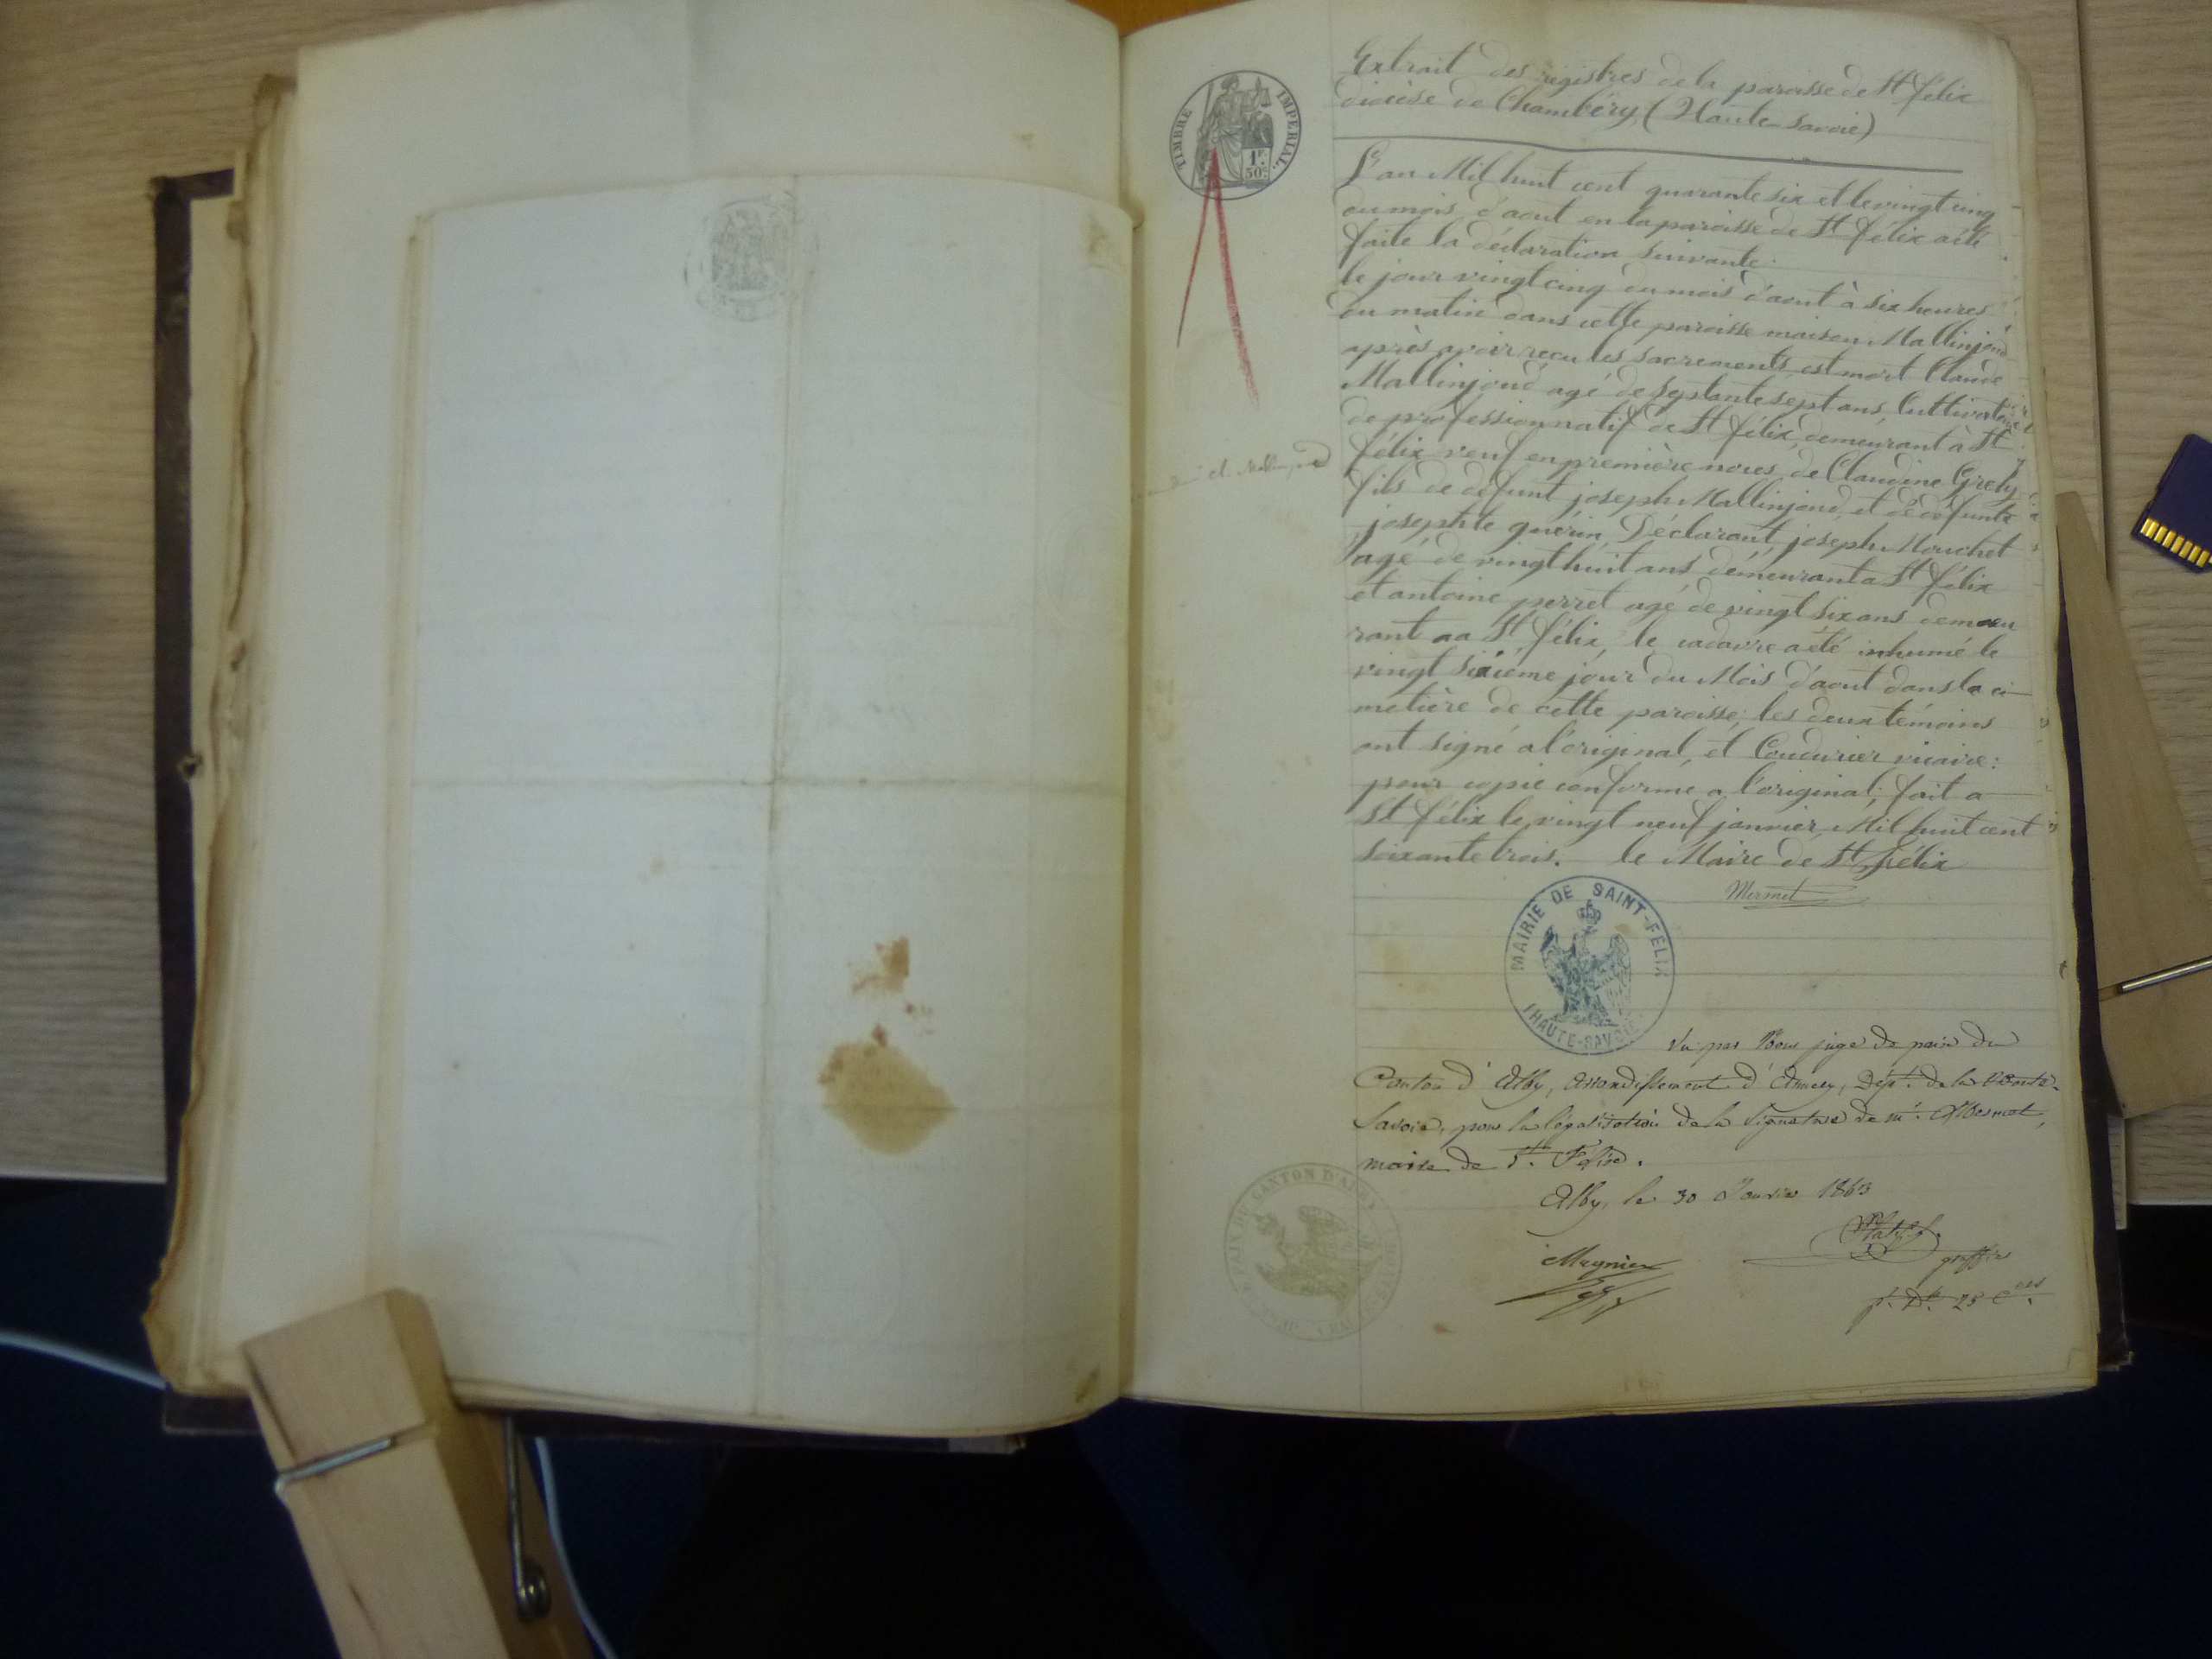 TIMBRE IMPERIAL.
1F.
50c.
Extrait des registres de la paroisse de St félix
diocèse de Chambéry, (Haute-Savoie)
L'an Mil huit cent quarante six et le vingt cinq
du mois d'aout en la paroisse de St félix a été
faite la déclaration suivante.
le jour vingt cinq du mois d'aout à six heures
du matin dans cette paroisse maison Mallinjoud
après avoir reçu les sacrements est mort Claude
Mallinjoud agé de septante sept ans, Cultivateur
de profession natif de St félix, demeurant à St
félix veuf en première noces de Claudine
fils de défunt joseph Mallinjoud, et de défunte
josephte guérin, Déclarant, joseph Mouchet
agé de vingt huit ans demeurant a St félix
et antoine perret agé de vingt six ans demeu
rant aa St félix, le cadavre a été inhumé le
vingt sixième jour du Mois d'aout dans la ci-
metière de cette paroisse, les deux témoins
ont signé a l'original, et Coudurier vicaire:
pour copie conforme a l'original, fait a
St félix le vingt neuf janvier Mil huit cent
soixante trois. le Maire de St félix
Mermet
MAIRIE DE SAINT-FELIX
(HAUTE-SAVOIE)
Vu par Nous juge de paix du
Canton d'Alby, Arrondissement d'Annecy, Dépt. de la Haute-
Savoie, pour la légalisation de la signature de mr. Mermet,
maire de St. Félix.
Alby, le 30 Janvier 1863
CANTON D'ALBY
Magnin
greffier
25 Ces.